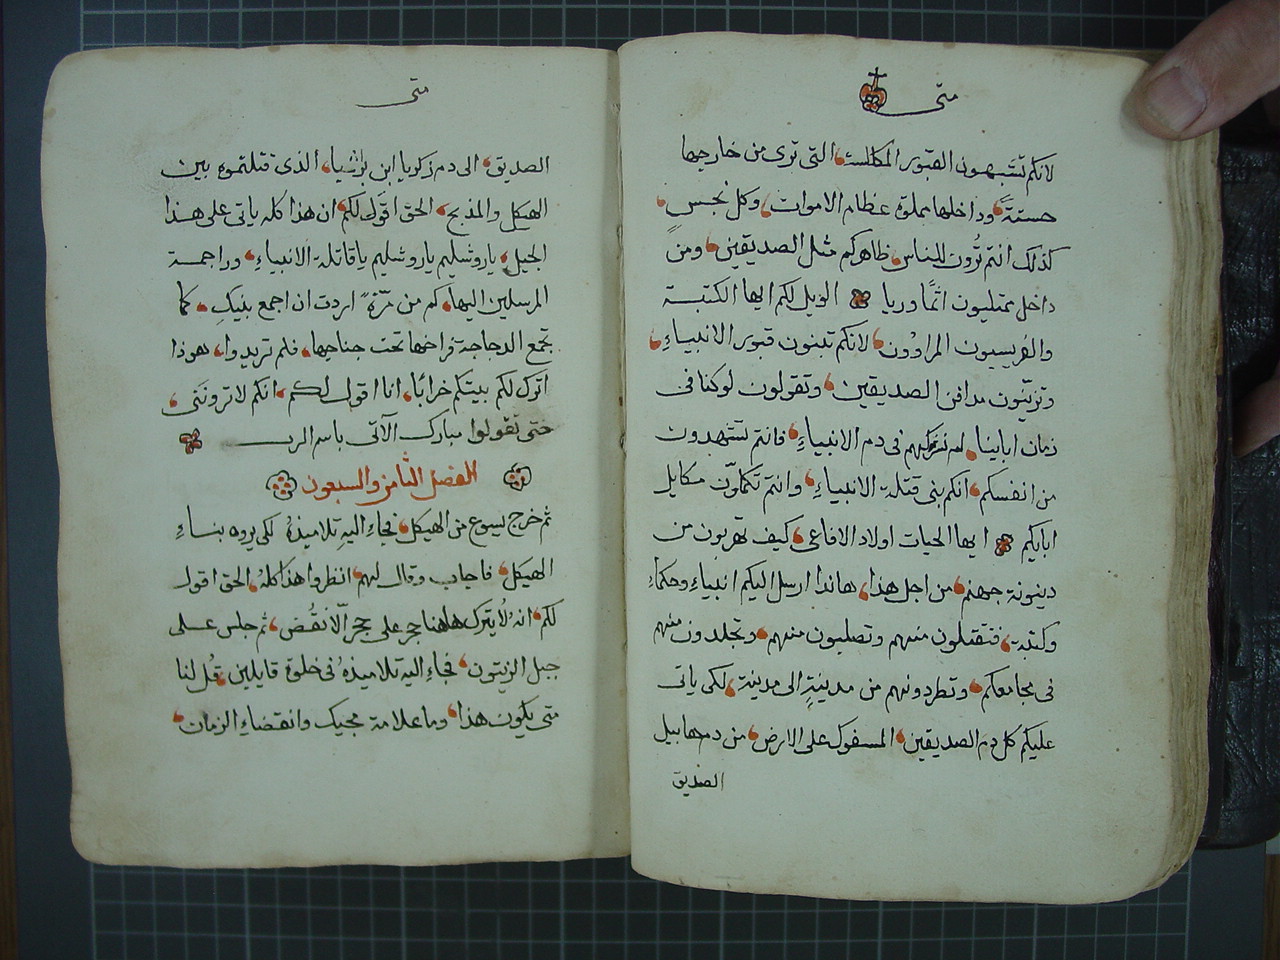 متى
لانكم تشبهون القبور المكلسة، التى ترى من خارجها
حسنةً، وداخلها مملوة عظام الاموات، وكل نجسٍ،
كذلك انتم تُرون للناس، ظاهركم مثل الصديقين، ومن
داخل ممتليون اثمًا وريا الويل لكم ايها الكتبة
والفريسيون المراوون، لانكم تبنون قبور الانبياءِ،
وتزيّنون مدافن الصديقين، وتقولون لو كنا فى
زمان اباينا، لم نشركهم فى دم الانبياءِ، فانتم تشهدون
من انفسكم، انكم بنى قتلة الانبياءِ، وانتم تكملوّن مكايل
ابايكم ايها الحيات اولاد الافاعى، كيف تهربون من
دينونة جهنم، من اجل هذا، هاندا ارسل اليكم انبياءِ وحكماءِ
وكتبة، فتقتلون منهم وتصلبون منهم، وتجلدون منهم
فى مجامعكم، وتطردونهم من مدينةٍ الى مدينة، لكى ياتى
عليكم كل دم الصديقين، المسفوك على الارض، من دم هابيل
الصديق
متى
الصديق، الى دم زكريا ابن براشيا، الذى قتلتموه بين
الهيكل والمذبح، الحق اقول لكم، ان هذا كله ياتى على هذا
الجيل، ياروشليم ياروشليم ياقاتلة الانبياءِ، وراجمة
المرسلين اليها، كم من مرّة اردت ان اجمع بنيكِ، كما
تجمع الدجاجة فراخها تحت جناحها، فلم تريدوا، هوذا
اترك لكم بيتكم خرابًا، انا اقول لكم، انكم لا ترونَنى،
حتى تقولوا مبارك الآتى باسم الرب
الفصل الثامن والسبعون
ثم خرج يسوع من الهيكل، فجاءِ اليهِ تلاميذهُ لكى يروه بناءِ
الهيكل، فاجاب وقال لهم، انظروا هذا كلهُ، الحق اقول
لكم، انهُ لا يترك هاهنا حجر على حجر الّا نقُض، ثم جلس على
جبل الزيتون، فجاءِ اليه تلاميذهُ فى خلوة قايلين، قُل لنا
متى يكون هذا، وما علامة مجيك وانقضاءِ الزمان،